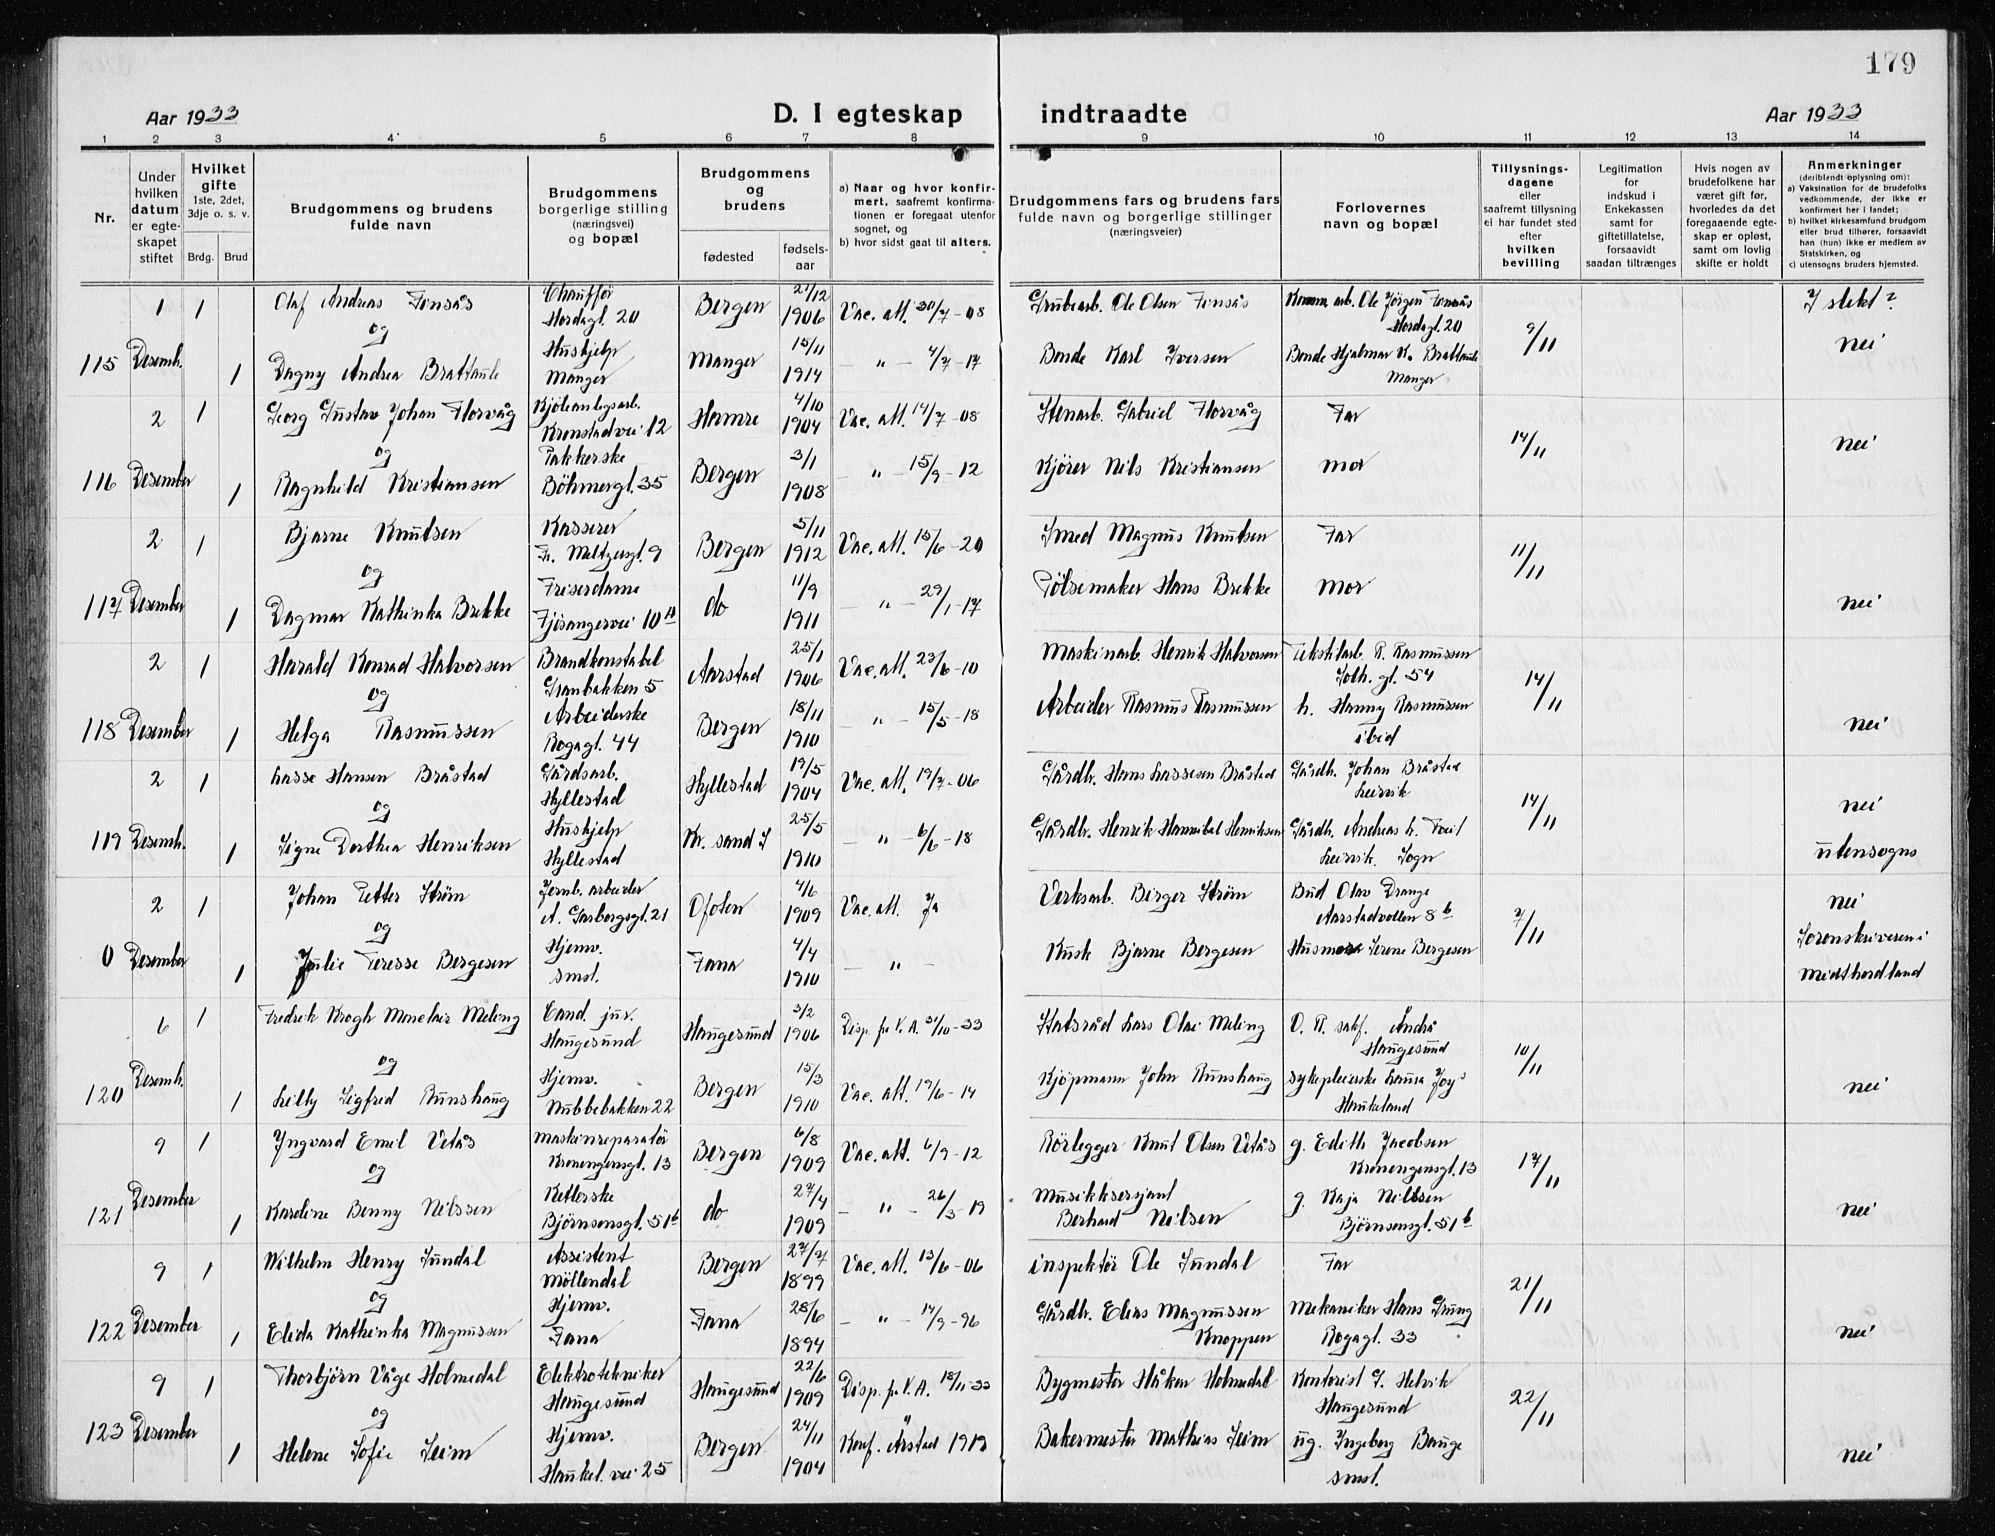 179
Aar 1933
D. I egteskap indtraadte
Aar 1933
1 2 3 4 5 6 7 8 9 10 11 12 13 14
Nr.
Under hvilken datum er egteskapet stiftet
Hvilket gifte 1ste, 2det, 3dje o. s. v.
Brdg. Brud
Brudgommens og brudens fulde navn
Brudgommens borgerlige stilling (næringsvei) og bopæl
Brudgommens og brudens
fødested
fødselsaar
a) Naar og hvor konfirmert, saafremt konfirmationen er foregaat utenfor sognet, og
b) hvor sidst gaat til alters.
Brudgommens fars og brudens fars fulde navn og borgerlige stillinger (næringsveier)
Forlovernes navn og bopæl
Tillysningsdagene eller saafremt tillysning ei har fundet sted efter hvilken bevilling
Legitimation for indskud i Enkekassen samt for giftetillatelse, forsaavidt saadan tiltrænges
Hvis nogen av brudefolkene har været gift før, hvorledes da det foregaaende egteskap er opløst, samt om lovlig skifte er holdt
Anmerkninger (deriblandt oplysning om):
a) Vaksination for de brudefolks vedkommende, der ikke er konfirmert her i landet;
b) hvilket kirkesamfund brudgom eller brud tilhører, forsaavidt han (hun) ikke er medlem av Statskirken, og
c) utensogns bruders hjemsted.
115 1 Desemb. 1 Olaf Andreas Finsås Chauffør Hordagt. 20 Bergen 21/12 1906 Vac. att. 30/7-08 Grubearb. Ole Olsen Finsås Komm. arb. Ole Jörgen Finsås Hordagt. 20 9/11 I slekt?
og
1 Dagny Andrea Brattaule Huskjelp Manger Manger 15/11 1914 — " — 4/7-17 Bonde Karl Iversen Bonde Hjalmar K. Brattaule Manger nei
116 2 Desember 1 Georg Gustav Johan Florvåg Kjöleanlegsarb. Kronstadvei 12 Hamre 4/10 1904 Vac. att. 14/7-08 Stenarb. Gabriel Florvåg Far 14/11 nei
og
1 Ragnhild Kristiansen Pakkerske Böhmergt. 35 Bergen 3/1 1908 " — 15/9-12 Kjörer Nils Kristiansen mor
117 2 Desember 1 Bjarne Knutsen Kasserer Fr. Meltzersgt. 9 Bergen 5/11 1912 Vac. att. 15/6-20 Smed Magnus Knutsen Far 11/11
og
1 Dagmar Kathinka Brekke Friserdame Fjösangervei 10 a do 11/9 1911 " — 29/1-17 Pölsemaker Hans Brekke mor nei
118 2 Desember 1 Harald Konrad Halvorsen Brandkonstabel Granbakken 5 Aarstad 25/1 1906 Vac. att. 23/6-10 Maskinarb. Henrik Halvorsen Tekstilarb. R. Rasmussen Solh. gt. 54 14/11
og
1 Helga Rasmussen Arbeiderske Rogagt. 44 Bergen 18/11 1910 — " — 15/5-18 Arbeider Rasmus Rasmussen h. Hanny Rasmussen ibid nei
119 2 Desemb. 1 Lasse Hansen Bråstad Gårdsarb. Hyllestad Hyllestad 19/5 1904 Vac. att. 19/7-06 Gårdbr. Hans Lassesen Bråstad Gårdbr. Johan Bråstad Leirvik 14/11 nei
og
1 Signe Dorthea Henriksen Huskjelp Hyllestad Kr. sand S 25/5 1910 — " — 6/6-18 Gårdbr. Henrik Hannibal Henriksen Gårdbr. Andreas L. Leirvik. Sogn utensogns
0 2 Desember 1 Johan Petter Ström Jernb. arbeider A. Garborgsgt. 21 Ofoten 4/6 1909 Vac. att. Ja Verksarb. Birger Ström Bud Olav Drange Aarstadvollen 8 b 7/11 nei
og
1 Julie Teresse Bergesen Hjemv. smst. Fana 4/4 1910 — " — Kusk Bjarne Bergesen Husmor Serene Bergesen Sorenskriveren i Midthordland
120 6 Desemb. 1 Fredrik Krogh Monclair Meling Cand. jur. Haugesund Haugesund 3/2 1906 Disp. fr V. A. 31/10-33 Statsråd Lars Olai Meling O. R. sakf. Andrå Haugesund 10/11
og
1 Lilly Sigfred Runshaug Hjemv. Nubbebakken 22 Bergen 15/3 1910 Vac. att. 19/6-14 Kjöpmann John Runshaug sykepleierske Laura Joys Haukeland nei
121 9 Desember 1 Yngvard Emil Vetås Maskinreparatör Kroneng​ensgt. 13 Bergen 6/8 1909 Vac. att. 6/9-12 Rörlegger Knut Olsen Vetås g. Edith Jacobsen Kronengensgt. 13 17/11
og
1 Karoline Benny Nilssen Ketlerske Björnsonsgt. 51 b do 27/4 1909 — " — 26/3-19 Musikksersjant Berhard Nilsen g. Kaja Nilssen Björnsonsgt. 51 b nei
122 9 Desember 1 Wilhelm Henry Sundal Assistent Möllendal Bergen 27/7 1899 Vac. att. 13/6-06 inspektör Ole Sundal Far 21/11
og
1 Elida Kathinka Magnussen Hjemv. Fana Fana 28/6 1894 — " — 14/9-96 Gårdbr. Elias Magnussen Knoppen Mekaniker Hans Grung Rogagt. 33 nei
123 9 Desember 1 Thorbjörn Våge Holmedal Elektrotekniker Haugesund Haugesund 22/6 1909 Disp. fr V. A. 18/11-33 Bygmester Håkon Holmedal Kontorist J. Helvik Haugesund 22/11
og
1 Helene Sofie Seim Hjemv. Haukel. vei 25 Bergen 24/11 1904 Konf. Årstad 1919 Bakermester Mathias Seim ug. Ingeborg Bauge smst. nei